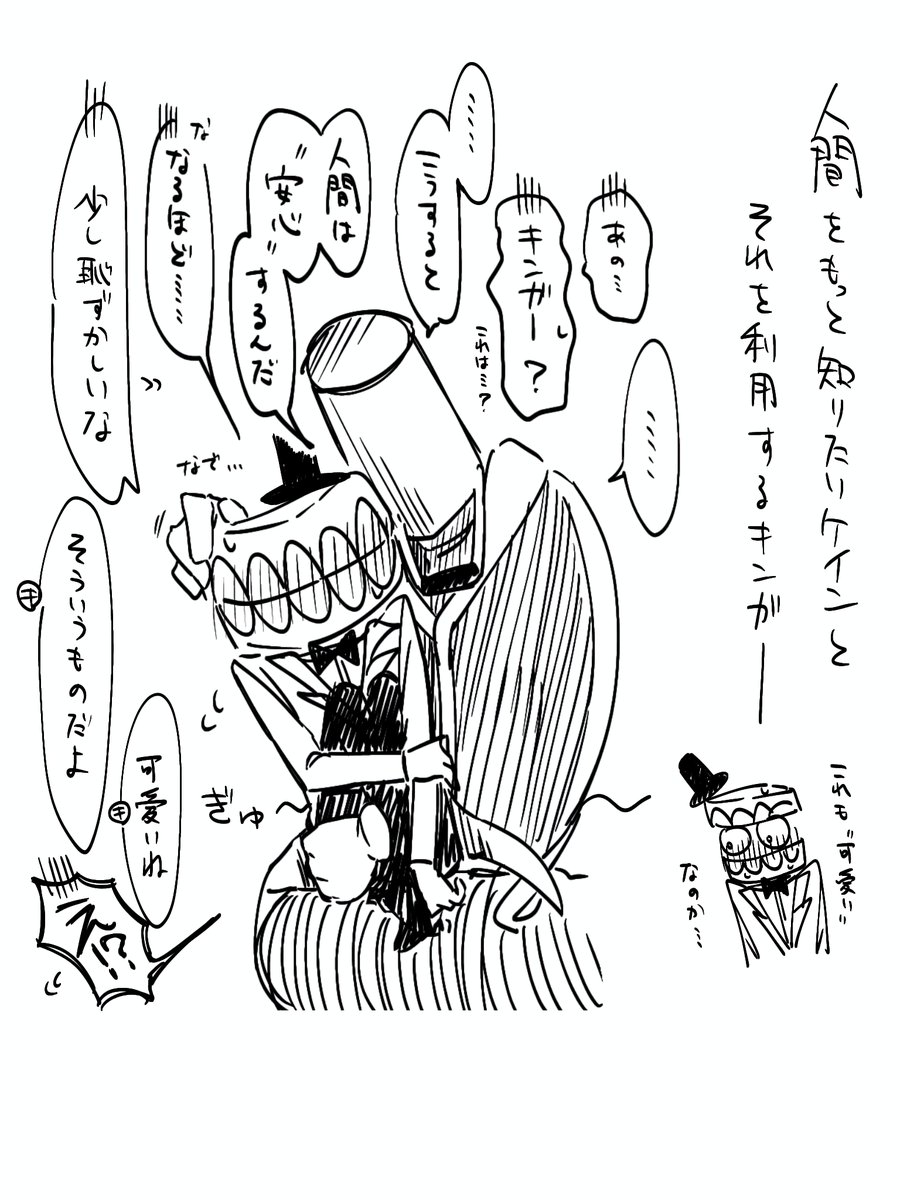 人間をもっと知りたいケインと
それを利用するキンガー
あの…
キンガー?
これは…?
……
……
こうすると
人間は
"安心"
するんだ
な
なるほど……
なで…
少し恥ずかしいな
そういうものだよ
キ
可愛いね
キ
え!?
ぎゅ
これも"可愛い"
なのか…